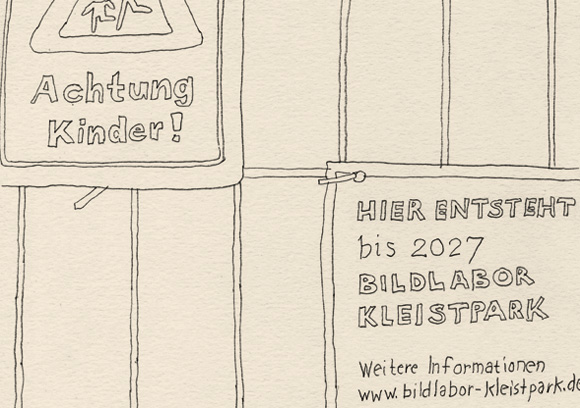 Achtung
Kinder!
HIER ENTSTEHT
bis 2027
BILDLABOR
KLEISTPARK
Weitere Informationen
www.bildlabor-kleistpark.de